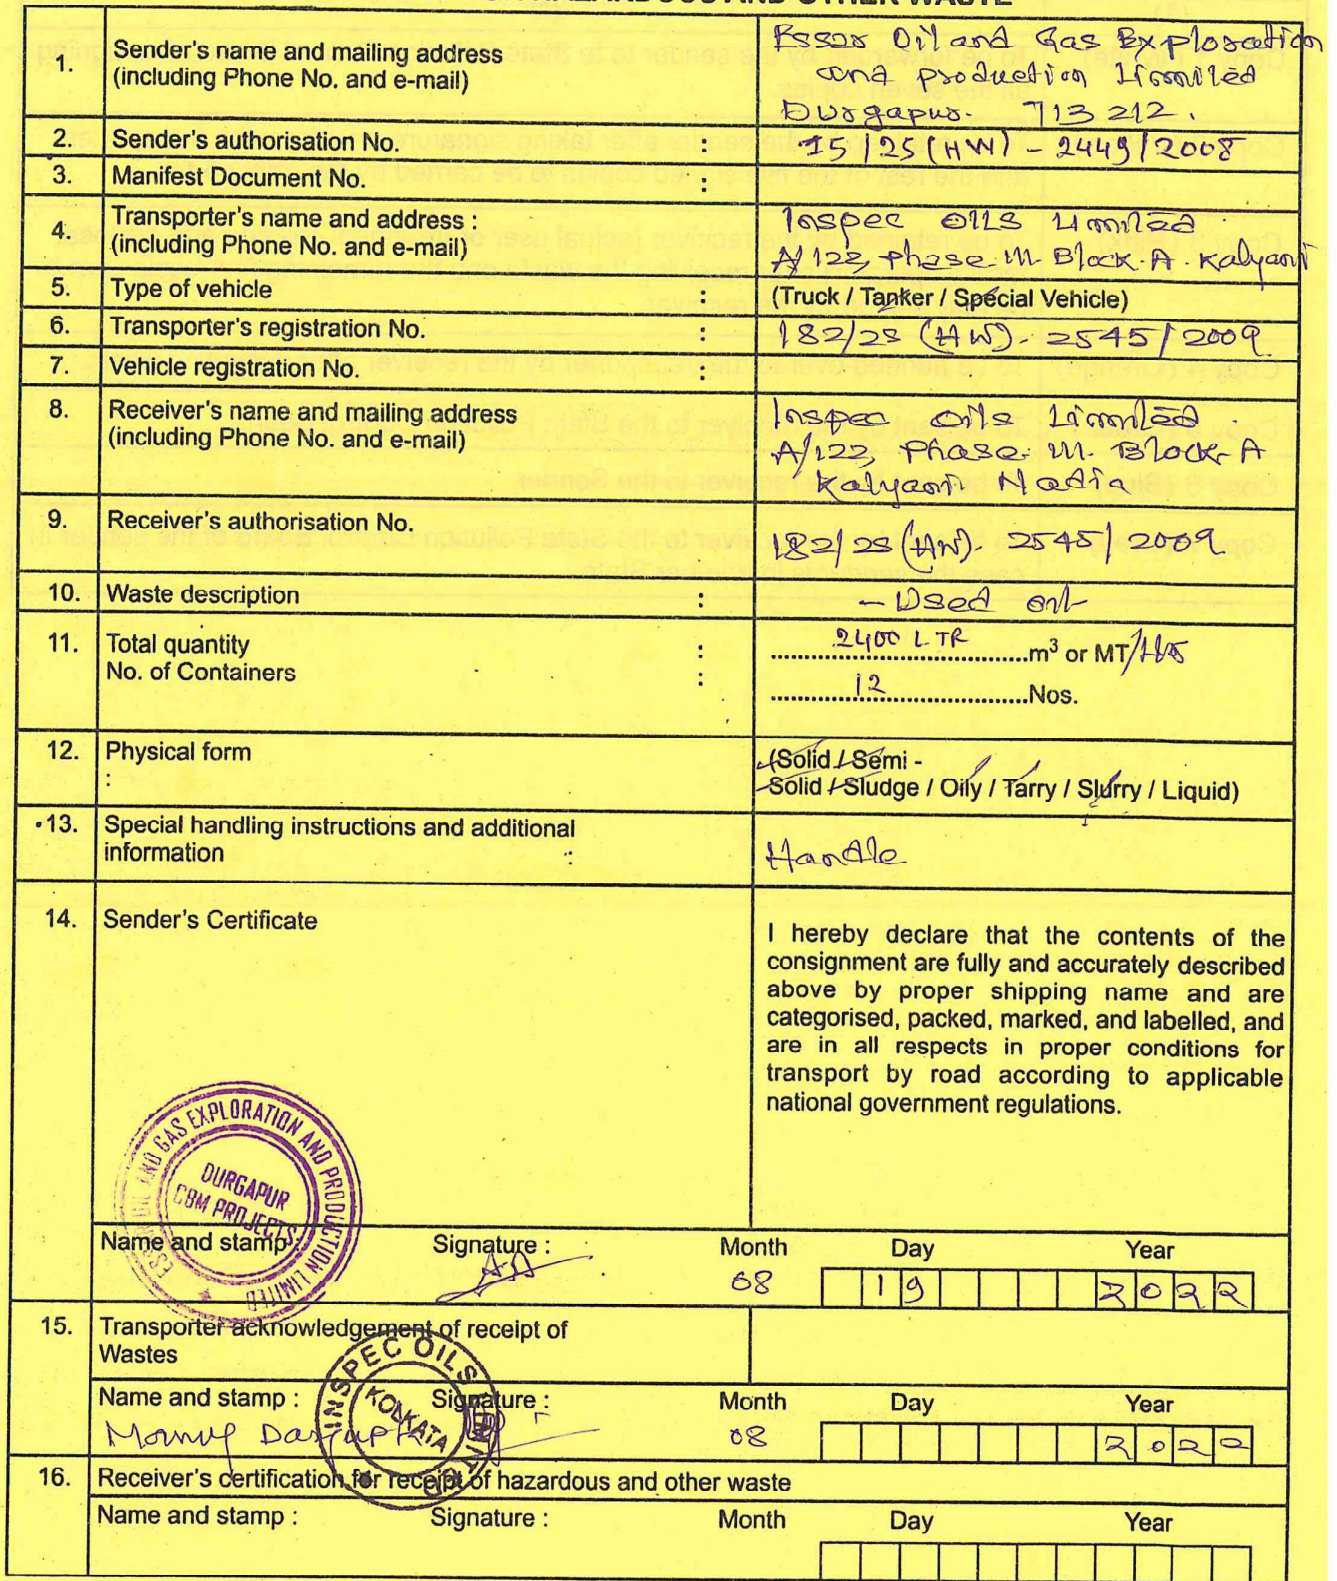 HAZARDOUS AND OTHER WASTE
1. Sender's name and mailing address
(including Phone No. and e-mail)
Essar Oil and Gas Exploration
and production Limited
Durgapur. 713212.
2. Sender's authorisation No. : 15/2S(HW) - 2449/2008
3. Manifest Document No. :
4. Transporter's name and address :
(including Phone No. and e-mail)
Inspec Oils Limited
A/122, Phase-III Block-A. Kalyani
5. Type of vehicle : (Truck / Tanker / Special Vehicle)
6. Transporter's registration No. : 182/2S (HW)- 2545/2009
7. Vehicle registration No. :
8. Receiver's name and mailing address :
(including Phone No. and e-mail)
Inspec Oils Limited
A/122, Phase-III. Block-A
Kalyani. Nadia
9. Receiver's authorisation No. :
182/2S(HW)- 2545/2009
10. Waste description : - Used oil-
11. Total quantity : 2400 LTR m³ or MT
No. of Containers : 12 Nos.
12. Physical form
:
(Solid / Semi -
Solid / Sludge / Oily / Tarry / Slurry / Liquid)
13. Special handling instructions and additional
information :
Handle
14. Sender's Certificate
I hereby declare that the contents of the
consignment are fully and accurately described
above by proper shipping name and are
categorised, packed, marked, and labelled, and
are in all respects in proper conditions for
transport by road according to applicable
national government regulations.
ESSAR OIL AND GAS EXPLORATION AND PRODUCTION LIMITED
DURGAPUR
CBM PROJECTS
Name and stamp : Signature : Month Day Year
08 19 2022
15. Transporter acknowledgement of receipt of
Wastes
INSPEC OILS LIMITED
KOLKATA
Name and stamp : Signature : Month Day Year
Dasgupta 08 2022
16. Receiver's certification for receipt of hazardous and other waste
Name and stamp : Signature : Month Day Year